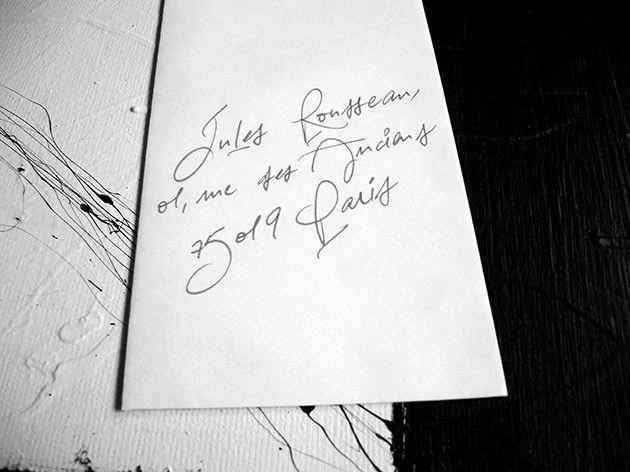 Jules Rousseau,
01, rue des Anciens
75019 Paris